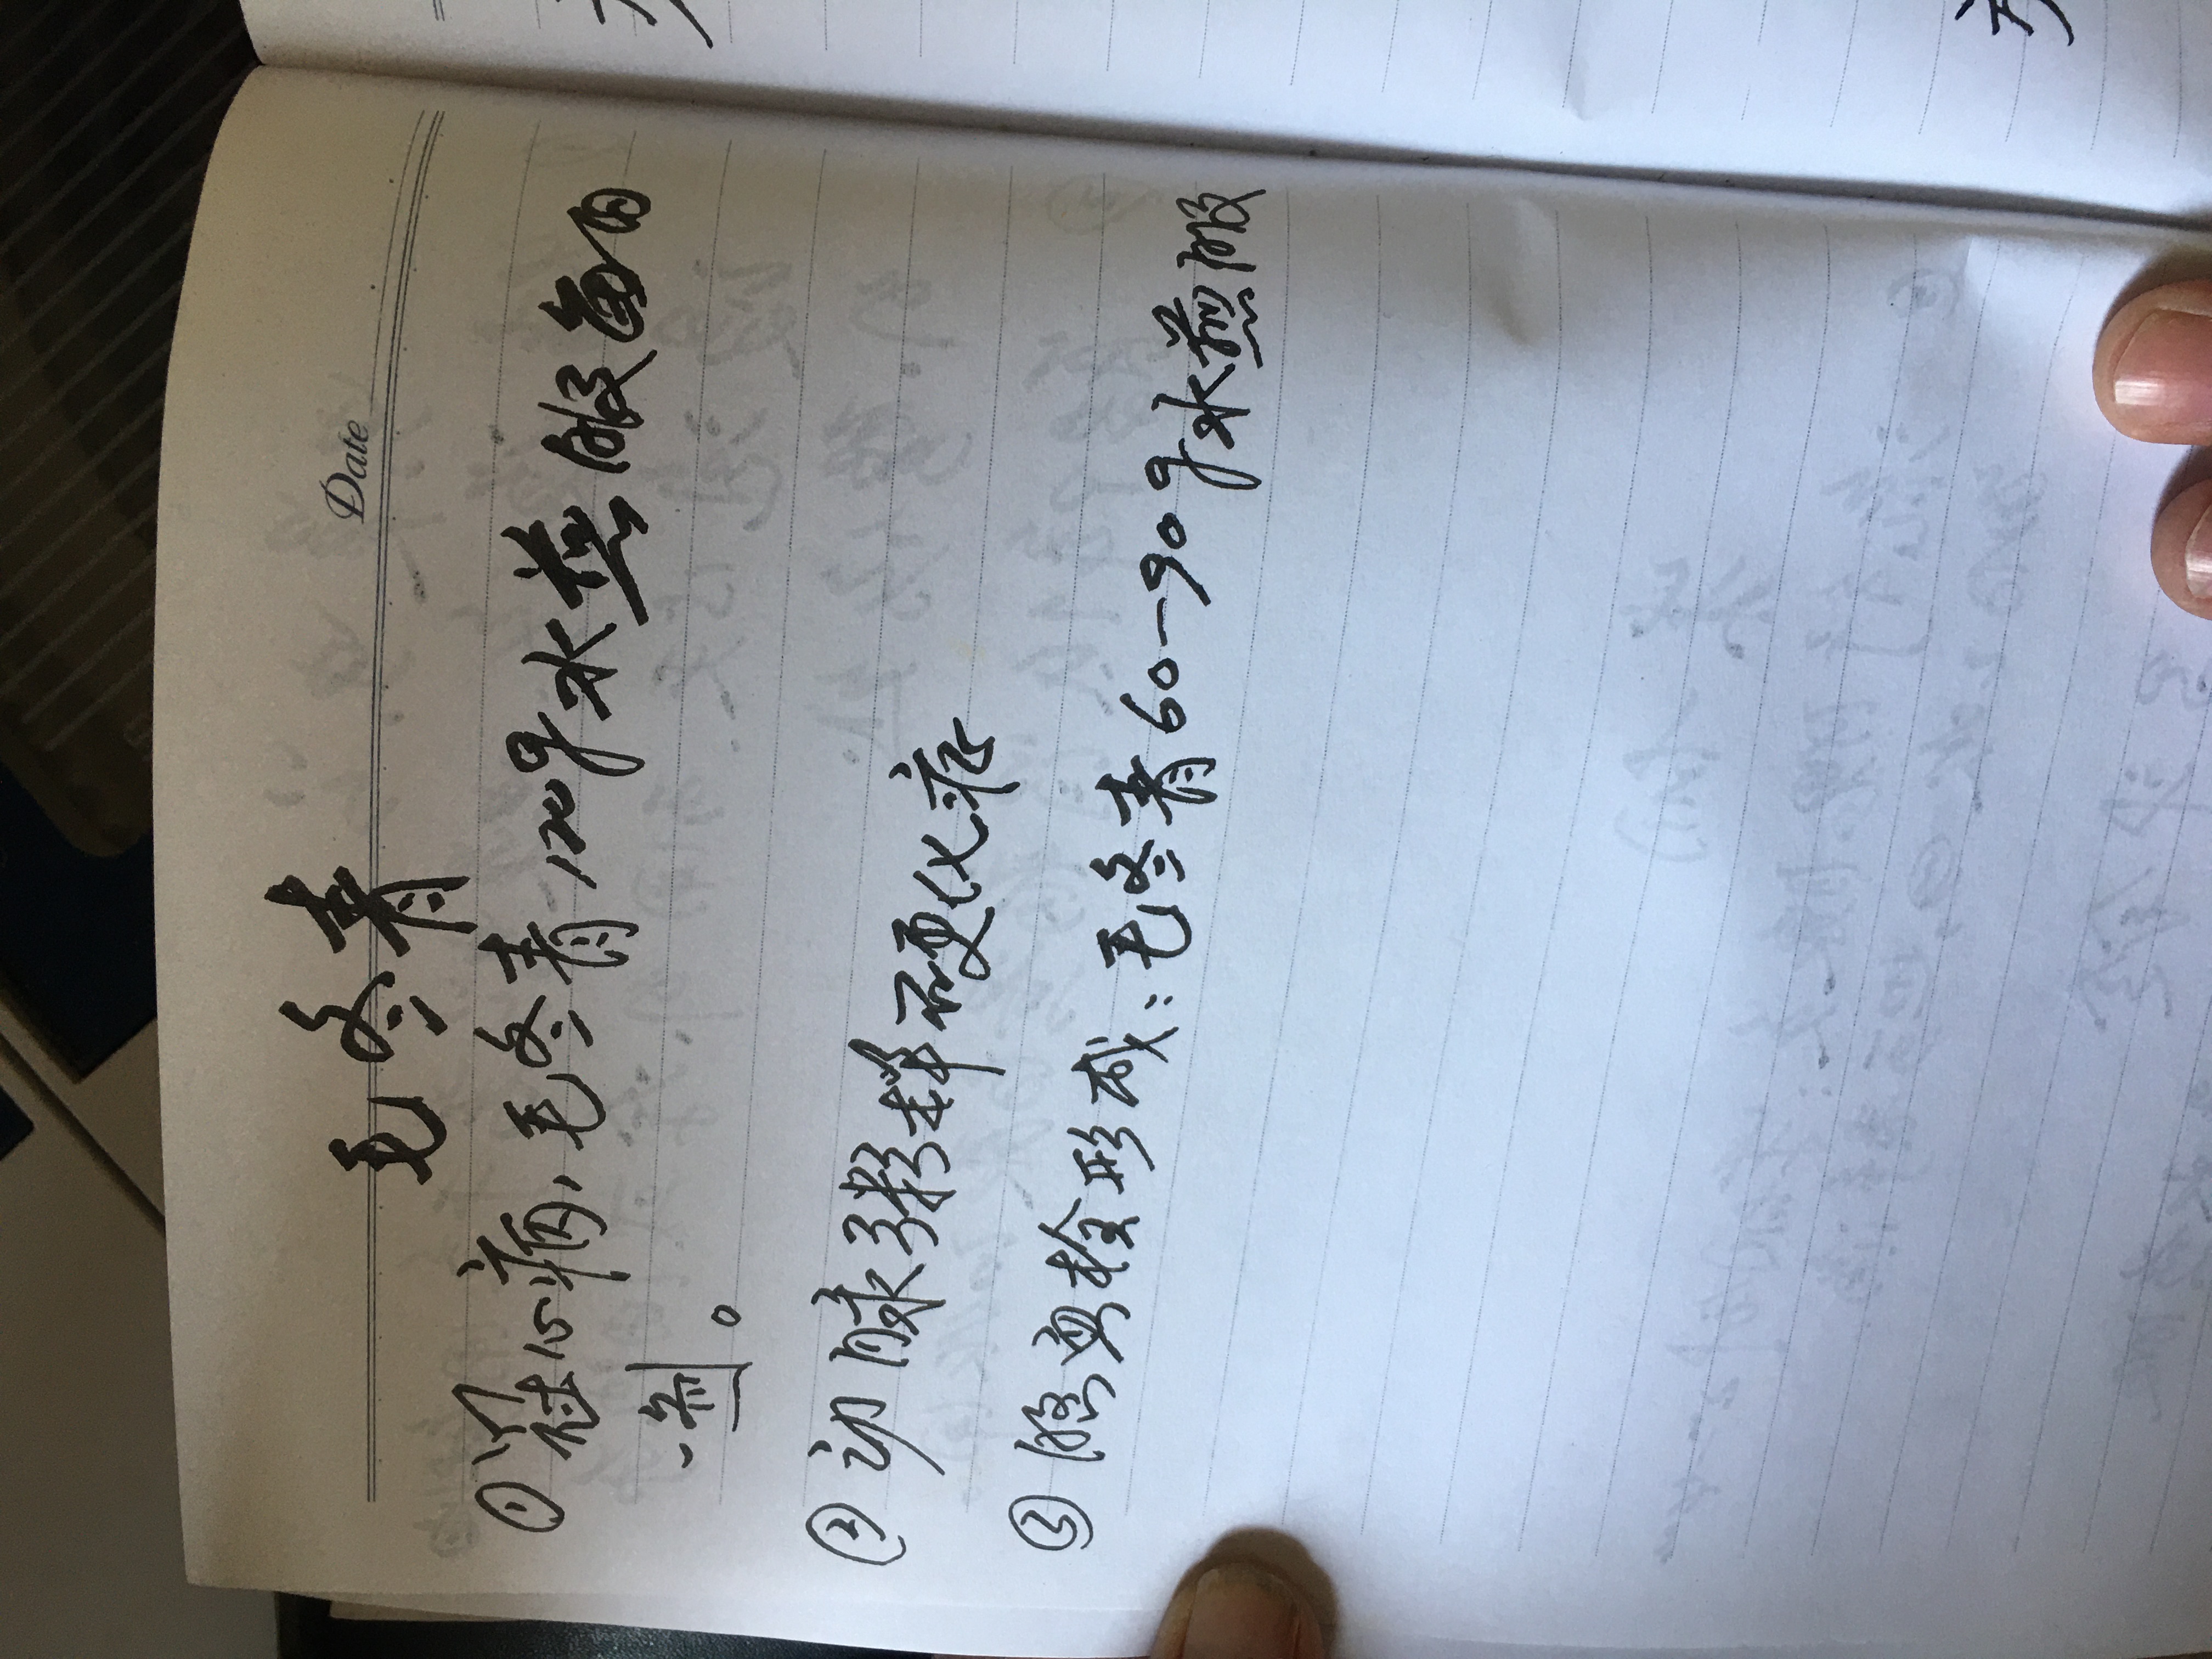 Date
毛冬青
① 冠心病，毛冬青120g水煎服每日
一剂。
② 动脉粥样硬化症
③ 脑血栓形成：毛冬青60-90g水煎服